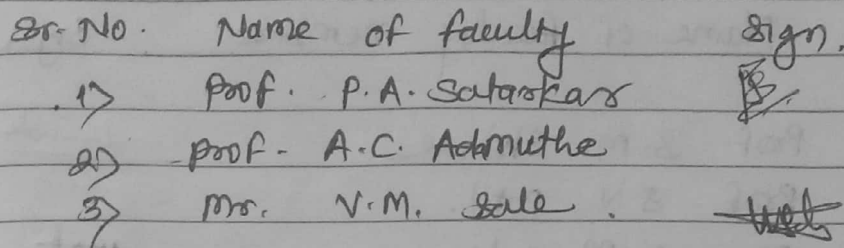 Sr. No. Name of faculty Sign.
1) Prof. P.A. Satarkar
2) Prof. A.C. Adamuthe
3) Mr. V.M. Sale.